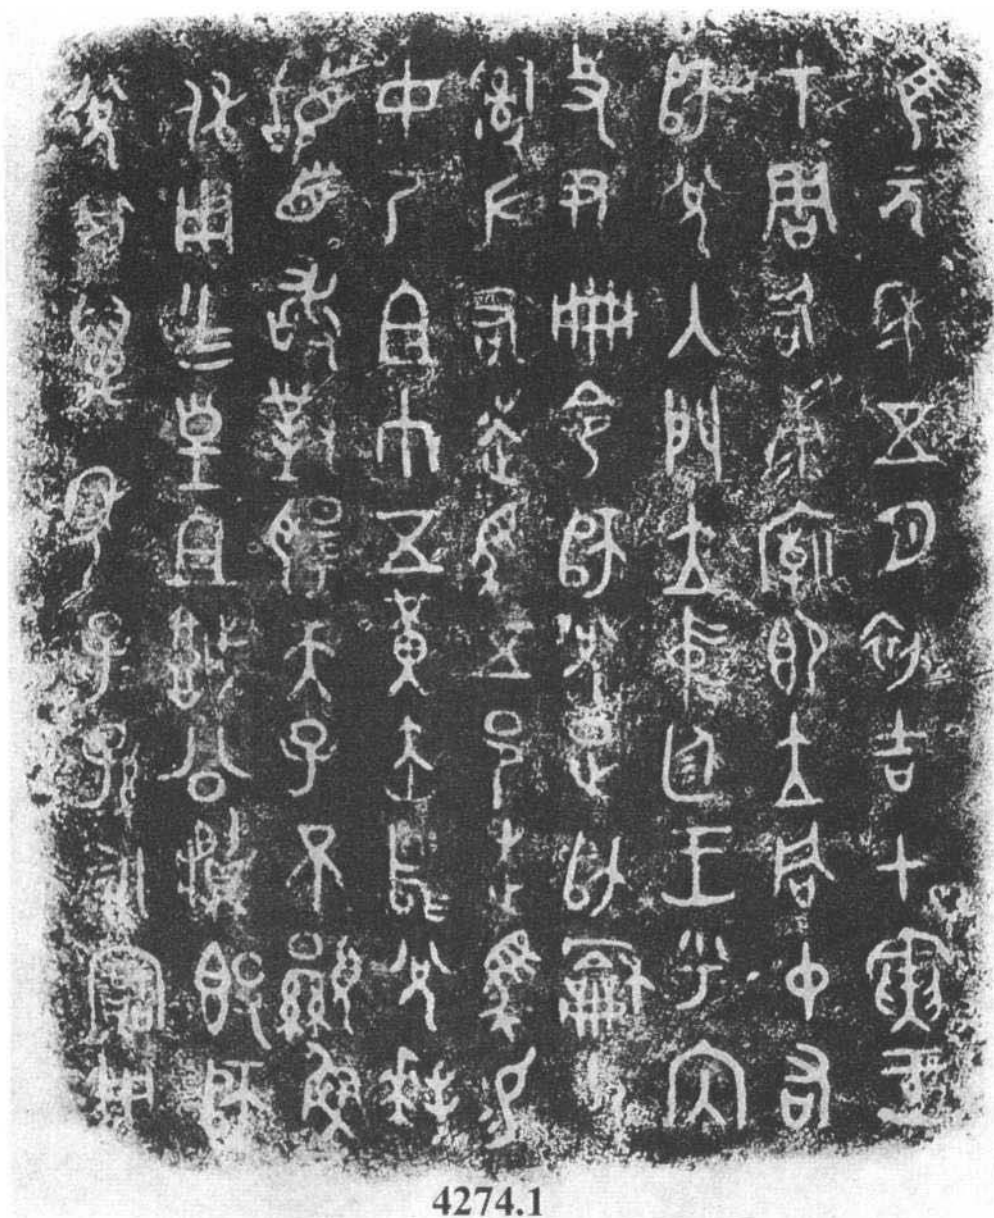 隹元年五月初吉甲寅王
才周各康廟即立同中右
師兌入門立中廷王乎內
史尹冊令師兌疋師龢父
𤔲左右走馬五邑走馬易
女乃且巾五黃赤舄兌拜
𩒨首敢對揚天子不顯魯
休用乍皇且城公𪔉𣪘師
兌其萬年子=孫=永寶用
4274.1